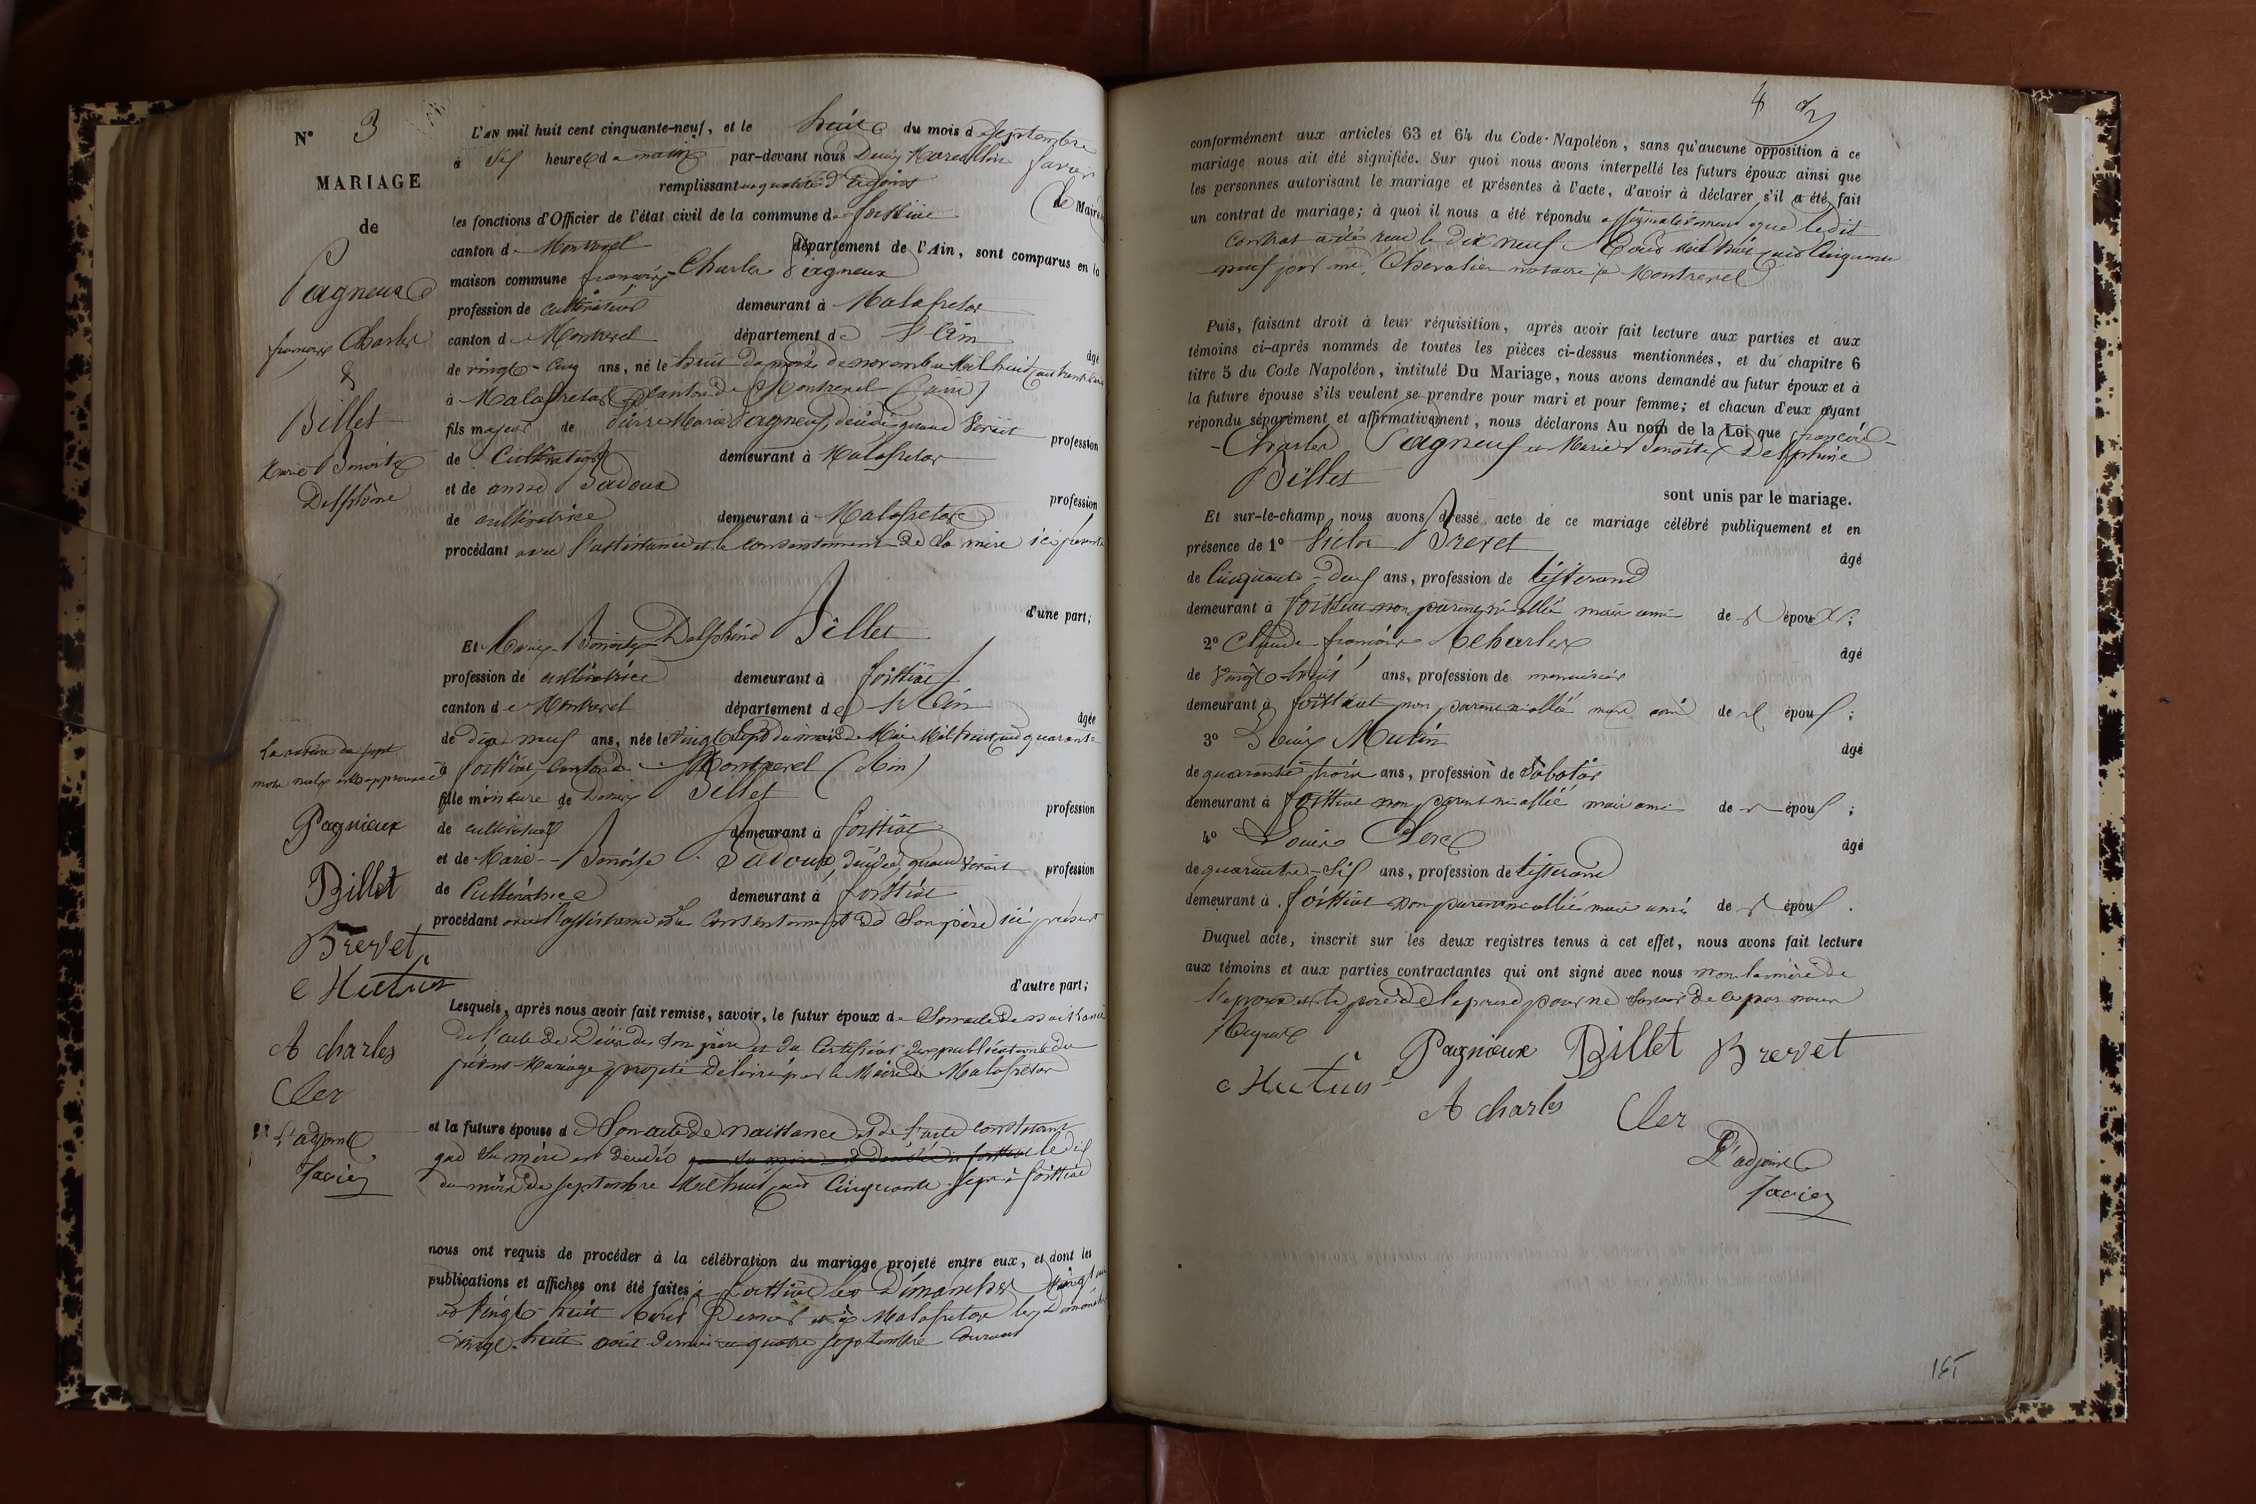 N° 3
MARIAGE
de
Pagneux
françois Charles
&
Billet
Marie Benoite
Delphine
La rature de sept
mots nuls est approuvée
Pagnieux
Billet
Brevet
Mutin
A charles
Cler
L'adjoint
Favier
L'AN mil huit cent cinquante-neuf, et le huit du mois de septembre
à dix heures du matin par-devant nous Denis Marcellin Favier
remplissant en qualité d'adjoint (de Maire)
les fonctions d'Officier de l'état civil de la commune de foissiat
canton de Montrevel département de l'Ain, sont comparus en la
maison commune françois Charles Pagneux
profession de cultivateur demeurant à Malafretaz
canton de Montrevel département de l'Ain
âgé
de vingt-cinq ans, né le huit du mois de novembre Mil huit cent trente
à Malafretaz canton de Montrevel (ain)
fils majeur de Pierre Marie Pagneux, décédé quand vivait profession
de Cultivateur demeurant à Malafretaz
et de anne Badoux profession
de cultivatrice demeurant à Malafretaz
procédant avec l'assistance et le consentement de sa mère ici présente
d'une part;
Et Marie Benoite Delphine Billet
profession de cultivatrice demeurant à foissiat
canton de Montrevel département de l'Ain
âgée
de dix neuf ans, née le vingt sept du mois de Mai Mil huit cent quarante
à foissiat canton de Montrevel (Ain)
fille mineure de Denis Billet profession
de cultivateur demeurant à foissiat
et de Marie-Benoite Badoux, décédée quand vivait profession
de Cultivatrice demeurant à foissiat
procédant avec l'assistance et le consentement de son père ici présent
d'autre part;
Lesquels, après nous avoir fait remise, savoir, le futur époux de son acte de naissance
de l'acte de Décès de son père et du Certificat des publications du
présent Mariage projeté délivré par le Maire de Malafretaz
et la future épouse de Son acte de naissance et de l'acte constatant
que sa mère est décédée le dix
du mois de septembre Mil huit cent Cinquante sept à foissiat
nous ont requis de procéder à la célébration du mariage projeté entre eux, et dont les
publications et affiches ont été faites à foissiat les Dimanches vingt un
et Vingt-huit Août Dernier et à Malafretaz les Dimanches
vingt-huit août dernier et quatre septembre courant
4
conformément aux articles 63 et 64 du Code-Napoléon, sans qu'aucune opposition à ce
mariage nous ait été signifiée. Sur quoi nous avons interpellé les futurs époux ainsi que
les personnes autorisant le mariage et présentes à l'acte, d'avoir à déclarer s'il a été fait
un contrat de mariage; à quoi il nous a été répondu affirmativement que le dit
contrat a été reçu le Dix neuf Août mil huit cent Cinquante
neuf par me Chevalier notaire à Montrevel
Puis, faisant droit à leur réquisition, après avoir fait lecture aux parties et aux
témoins ci-après nommés de toutes les pièces ci-dessus mentionnées, et du chapitre 6
titre 5 du Code Napoléon, intitulé Du Mariage, nous avons demandé au futur époux et à
la future épouse s'ils veulent se prendre pour mari et pour femme; et chacun d'eux ayant
répondu séparément et affirmativement, nous déclarons Au nom de la Loi que françois
Charles Pagneux et Marie Benoite Delphine
Billet
sont unis par le mariage.
Et sur-le-champ nous avons dressé acte de ce mariage célébré publiquement et en
présence de 1° Victor Brevet
âgé
de Cinquante-deux ans, profession de tisserand
demeurant à foissiat non parent ni allié mais ami de l'époux;
2° Claude françois Acharles
âgé
de Vingt-huit ans, profession de menuisier
demeurant à foissiat non parent ni allié mais ami de l'époux;
3° Denis Mutin
âgé
de quarante trois ans, profession de sabotier
demeurant à foissiat non parent ni allié mais ami de l'époux;
4° Louis Clerc
âgé
de quarante-six ans, profession de tisserand
demeurant à foissiat non parent ni allié mais ami de l'époux.
Duquel acte, inscrit sur les deux registres tenus à cet effet, nous avons fait lecture
aux témoins et aux parties contractantes qui ont signé avec nous non la mère de
l'époux et le père de l'épouse pour ne savoir de ce par nous
requis
Pagnieux Billet Brevet
Mutin
A charles Cler
L'adjoint
Favier
165